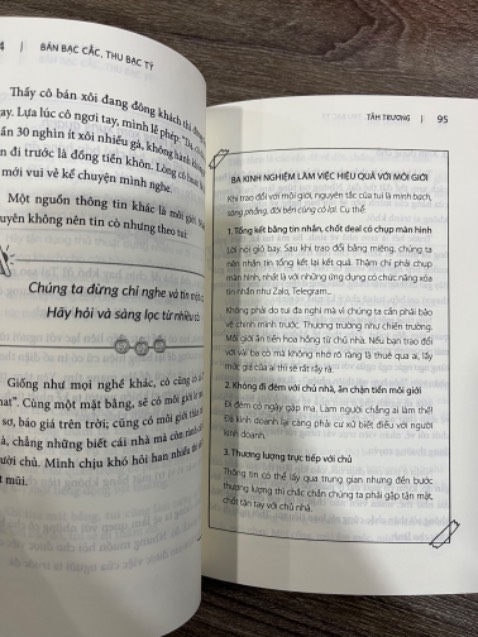 4 | BÁN BẠC CẮC, THU BẠC TỶ
Thấy cô bán xôi đang đông khách thì
ay. Lựa lúc cô ngơi tay, mình lễ phép: "Dạ,
ấn 30 nghìn ít xôi nhiều gà, không hành
n đi trước là đồng tiền khôn. Lòng cô hoan
mới vui vẻ kể chuyện mình nghe.
Một nguồn thông tin khác là môi giới.
uyên không nên tin cò nhưng theo tui:
Chúng ta đừng chỉ nghe và tin một
Hãy hỏi và sàng lọc từ nhiều cò
Giống như mọi nghề khác, cò cũng có
nat". Cùng một mặt bằng, sẽ có môi giới
sơ, báo giá trên trời; cũng có môi giới
à, chẳng những biết cái nhà mà còn rành
ười chủ. Mình chịu khó hỏi han nhiều
t mũi.
TÂM TRƯƠNG | 95
BA KINH NGHIỆM LÀM VIỆC HIỆU QUẢ VỚI MÔI GIỚI
Khi trao đổi với môi giới, nguyên tắc của tui là minh bạch,
sòng phẳng, đôi bên cùng có lợi. Cụ thể:
1. Tổng kết bằng tin nhắn, chốt deal có chụp màn hình
Lời nói gió bay. Sau khi trao đổi bằng miệng, chúng ta
nên nhắn tin tổng kết lại kết quả. Thậm chí phải chụp
màn hình, nhất là với những ứng dụng có chức năng xóa
tin nhắn như Zalo, Telegram...
Không phải do tui đa nghi mà vì chúng ta cần phải bảo
vệ chính mình trước. Thương trường như chiến trường.
Môi giới ăn tiền hoa hồng từ chủ nhà. Nếu bạn trao đổi
với vài ba cò mà không nhớ rõ ràng là thuê qua ai, lấy
mức giá của ai thì sẽ rất rầy rà.
2. Không đi đêm với chủ nhà, ăn chặn tiền môi giới
Đi đêm có ngày gặp ma. Làm người chẳng ai làm thế!
Đã kinh doanh lại càng phải cư xử biết điều với người
kinh doanh.
3. Thương lượng trực tiếp với chủ
Thông tin có thể lấy qua trung gian nhưng đến bước
thương lượng thì chắc chắn chúng ta phải gặp tận mặt,
chốt tận tay với chủ nhà.